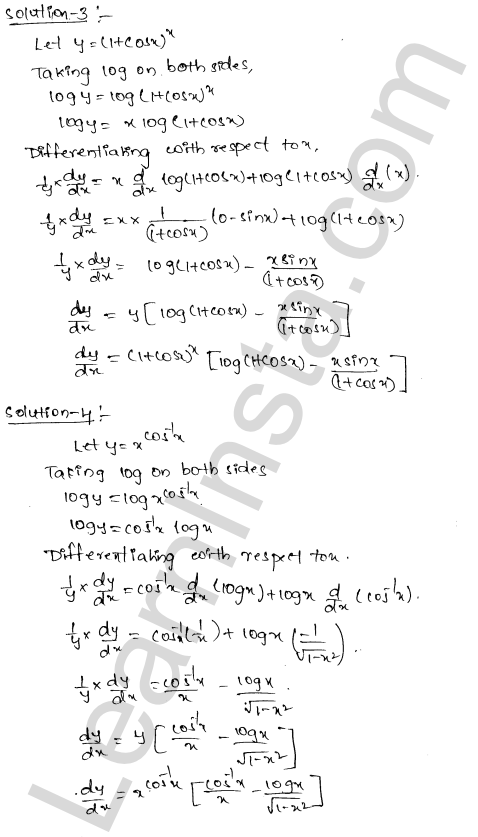 Solution-3 :-
Let y = (1+cosx)^x
Taking log on both sides,
log y = log (1+cosx)^x
log y = x log (1+cosx)
Differentiating with respect to x,
1/y × dy/dx = x d/dx log(1+cosx) + log(1+cosx) d/dx (x).
1/y × dy/dx = x × 1/(1+cosx) (0-sinx) + log(1+cosx)
1/y × dy/dx = log(1+cosx) - xsinx/(1+cosx)
dy/dx = y [log(1+cosx) - xsinx/(1+cosx)]
dy/dx = (1+cosx)^x [log(1+cosx) - xsinx/(1+cosx)]
Solution-4 :-
Let y = x^cos⁻¹x
Taking log on both sides
log y = log x^cos⁻¹x.
log y = cos⁻¹x log x
Differentiating with respect to x.
1/y × dy/dx = cos⁻¹x d/dx (log x) + log x d/dx (cos⁻¹x).
1/y × dy/dx = cos⁻¹x (1/x) + log x (-1/√1-x²).
1/y × dy/dx = cos⁻¹x/x - log x/√1-x².
dy/dx = y [cos⁻¹x/x - log x/√1-x²]
dy/dx = x^cos⁻¹x [cos⁻¹x/x - log x/√1-x²]
LearnInsta.com